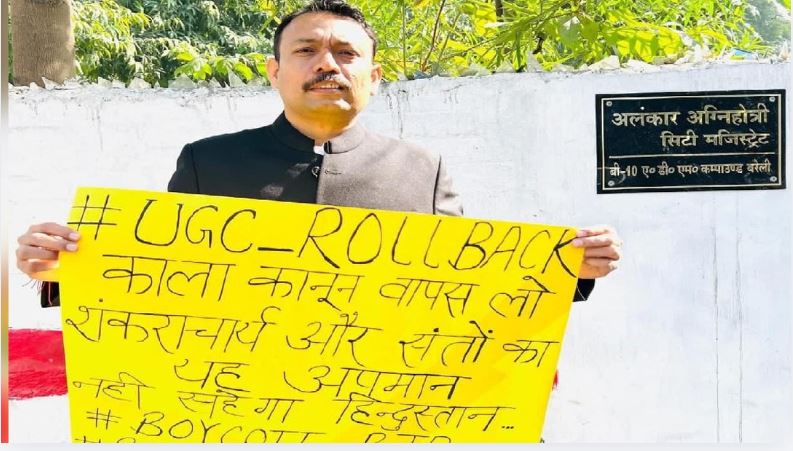 अलंकार अग्निहोत्री
सिटी मजिस्ट्रेट
बी-10 ए० डी० एम० कम्पाउण्ड बरेली
# UGC_ROLLBACK
काला कानून वापस लो
शंकराचार्य और संतों का
यह अपमान
नहीं सहेगा हिन्दुस्तान...
# BOYCOTT BJP